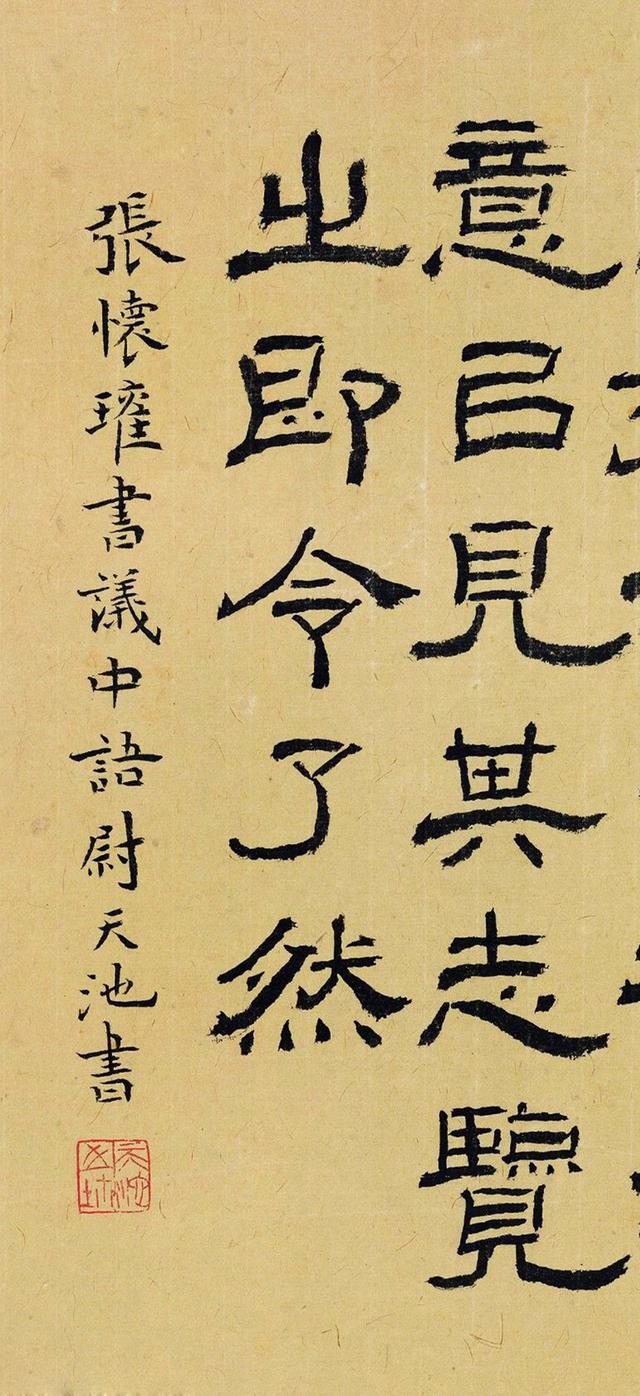 意㠯見其志覽
之即令了然
張懷瓘書議中語尉天池書